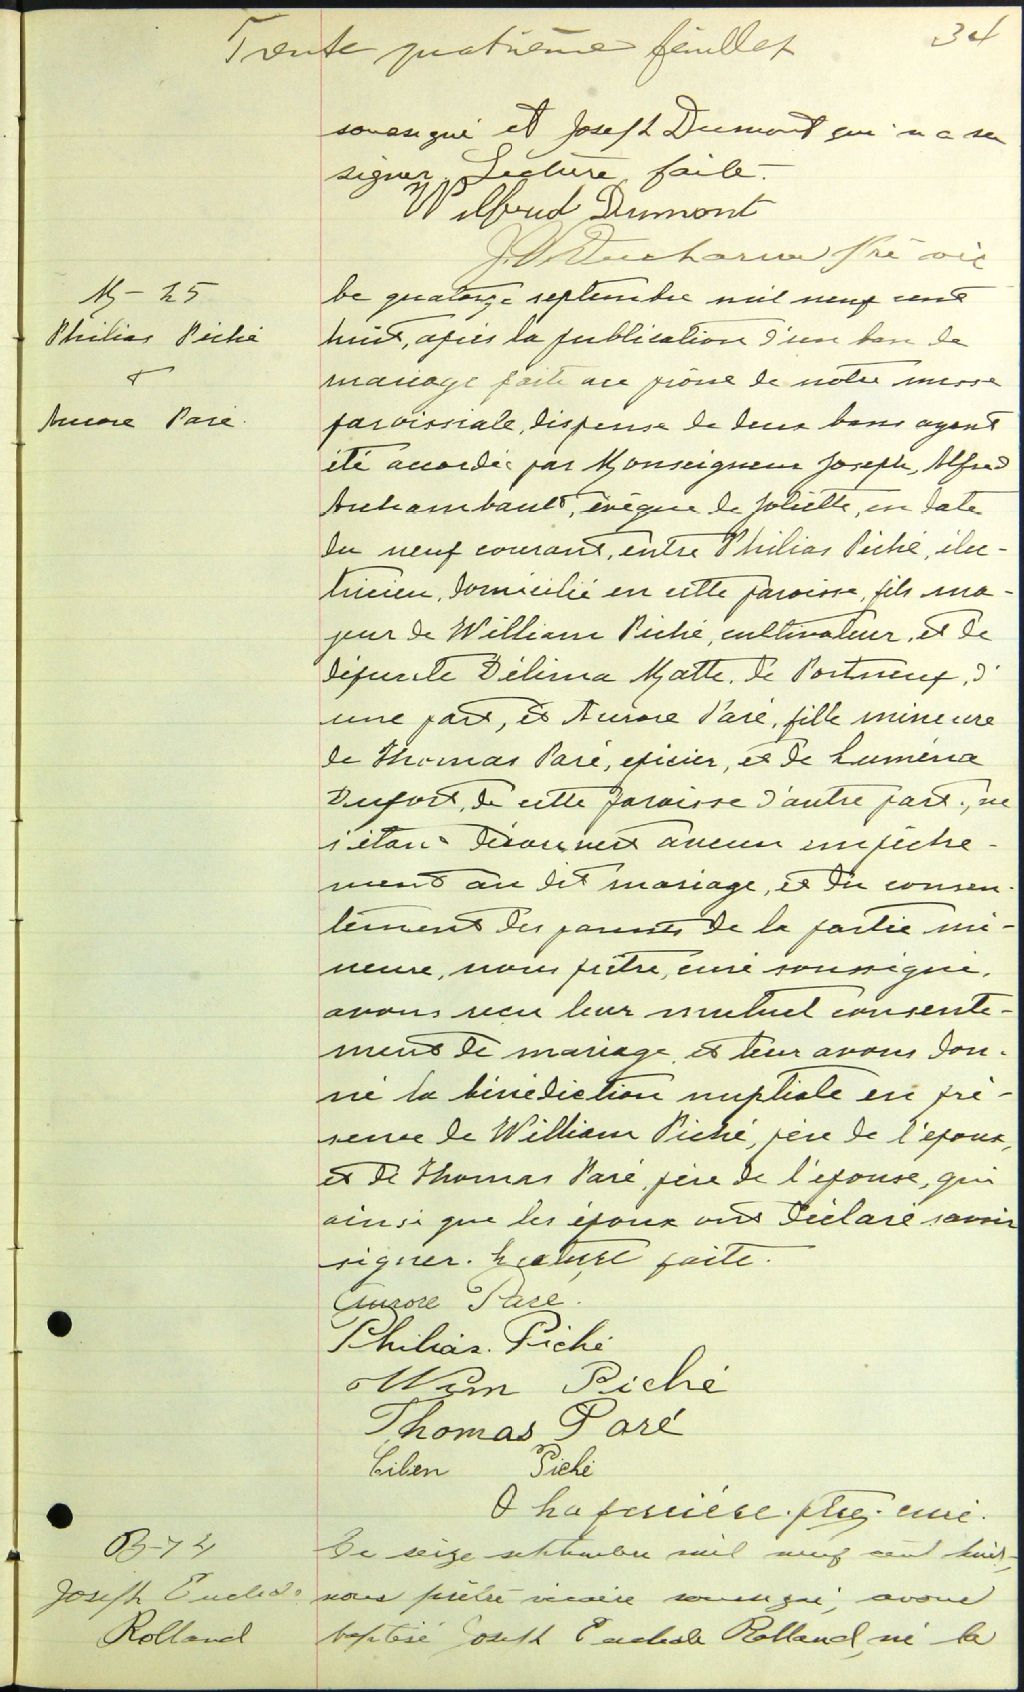 Trente quatrième feuillet 34
soussigné et Joseph Dumont qui n'a su
signer. Lecture faite.
Wilfrid Dumont
J. Ducharme Ptre vic
M-25
Philias Piché
&
Aurore Paré.
Le quatorze septembre mil neuf cent
huit, après la publication d'un ban de
mariage faite au prône de notre messe
paroissiale, dispense de deux bans ayant
été accordée par Monseigneur Joseph, Alfred
Archambault, évêque de Joliette, en date
du neuf courant, entre Philias Piché, élec-
tricien, domicilié en cette paroisse, fils ma-
jeur de William Piché, cultivateur, et de
défunte Délima Matte, de Portneuf, d'
une part, et Aurore Paré, fille mineure
de Thomas Paré, épicier, et de Luména
Dufort, de cette paroisse d'autre part; ne
s'étant découvert aucun empêche-
ment au dit mariage, et du consen-
tement des parents de la partie mi-
neure, nous prêtre, curé soussigné,
avons reçu leur mutuel consente-
ment de mariage et leur avons don-
né la bénédiction nuptiale en pré-
sence de William Piché, père de l'époux,
et de Thomas Paré, père de l'épouse, qui
ainsi que les époux ont déclaré savoir
signer. Lecture faite.
Aurore Paré.
Philias. Piché
Wm Piché
Thomas Paré
Piché
ptre. curé.
B-74
Joseph Euclide
Rolland
Le seize septembre mil neuf cent huit,
nous prêtre vicaire soussigné, avons
baptisé Joseph Euclide Rolland, né le